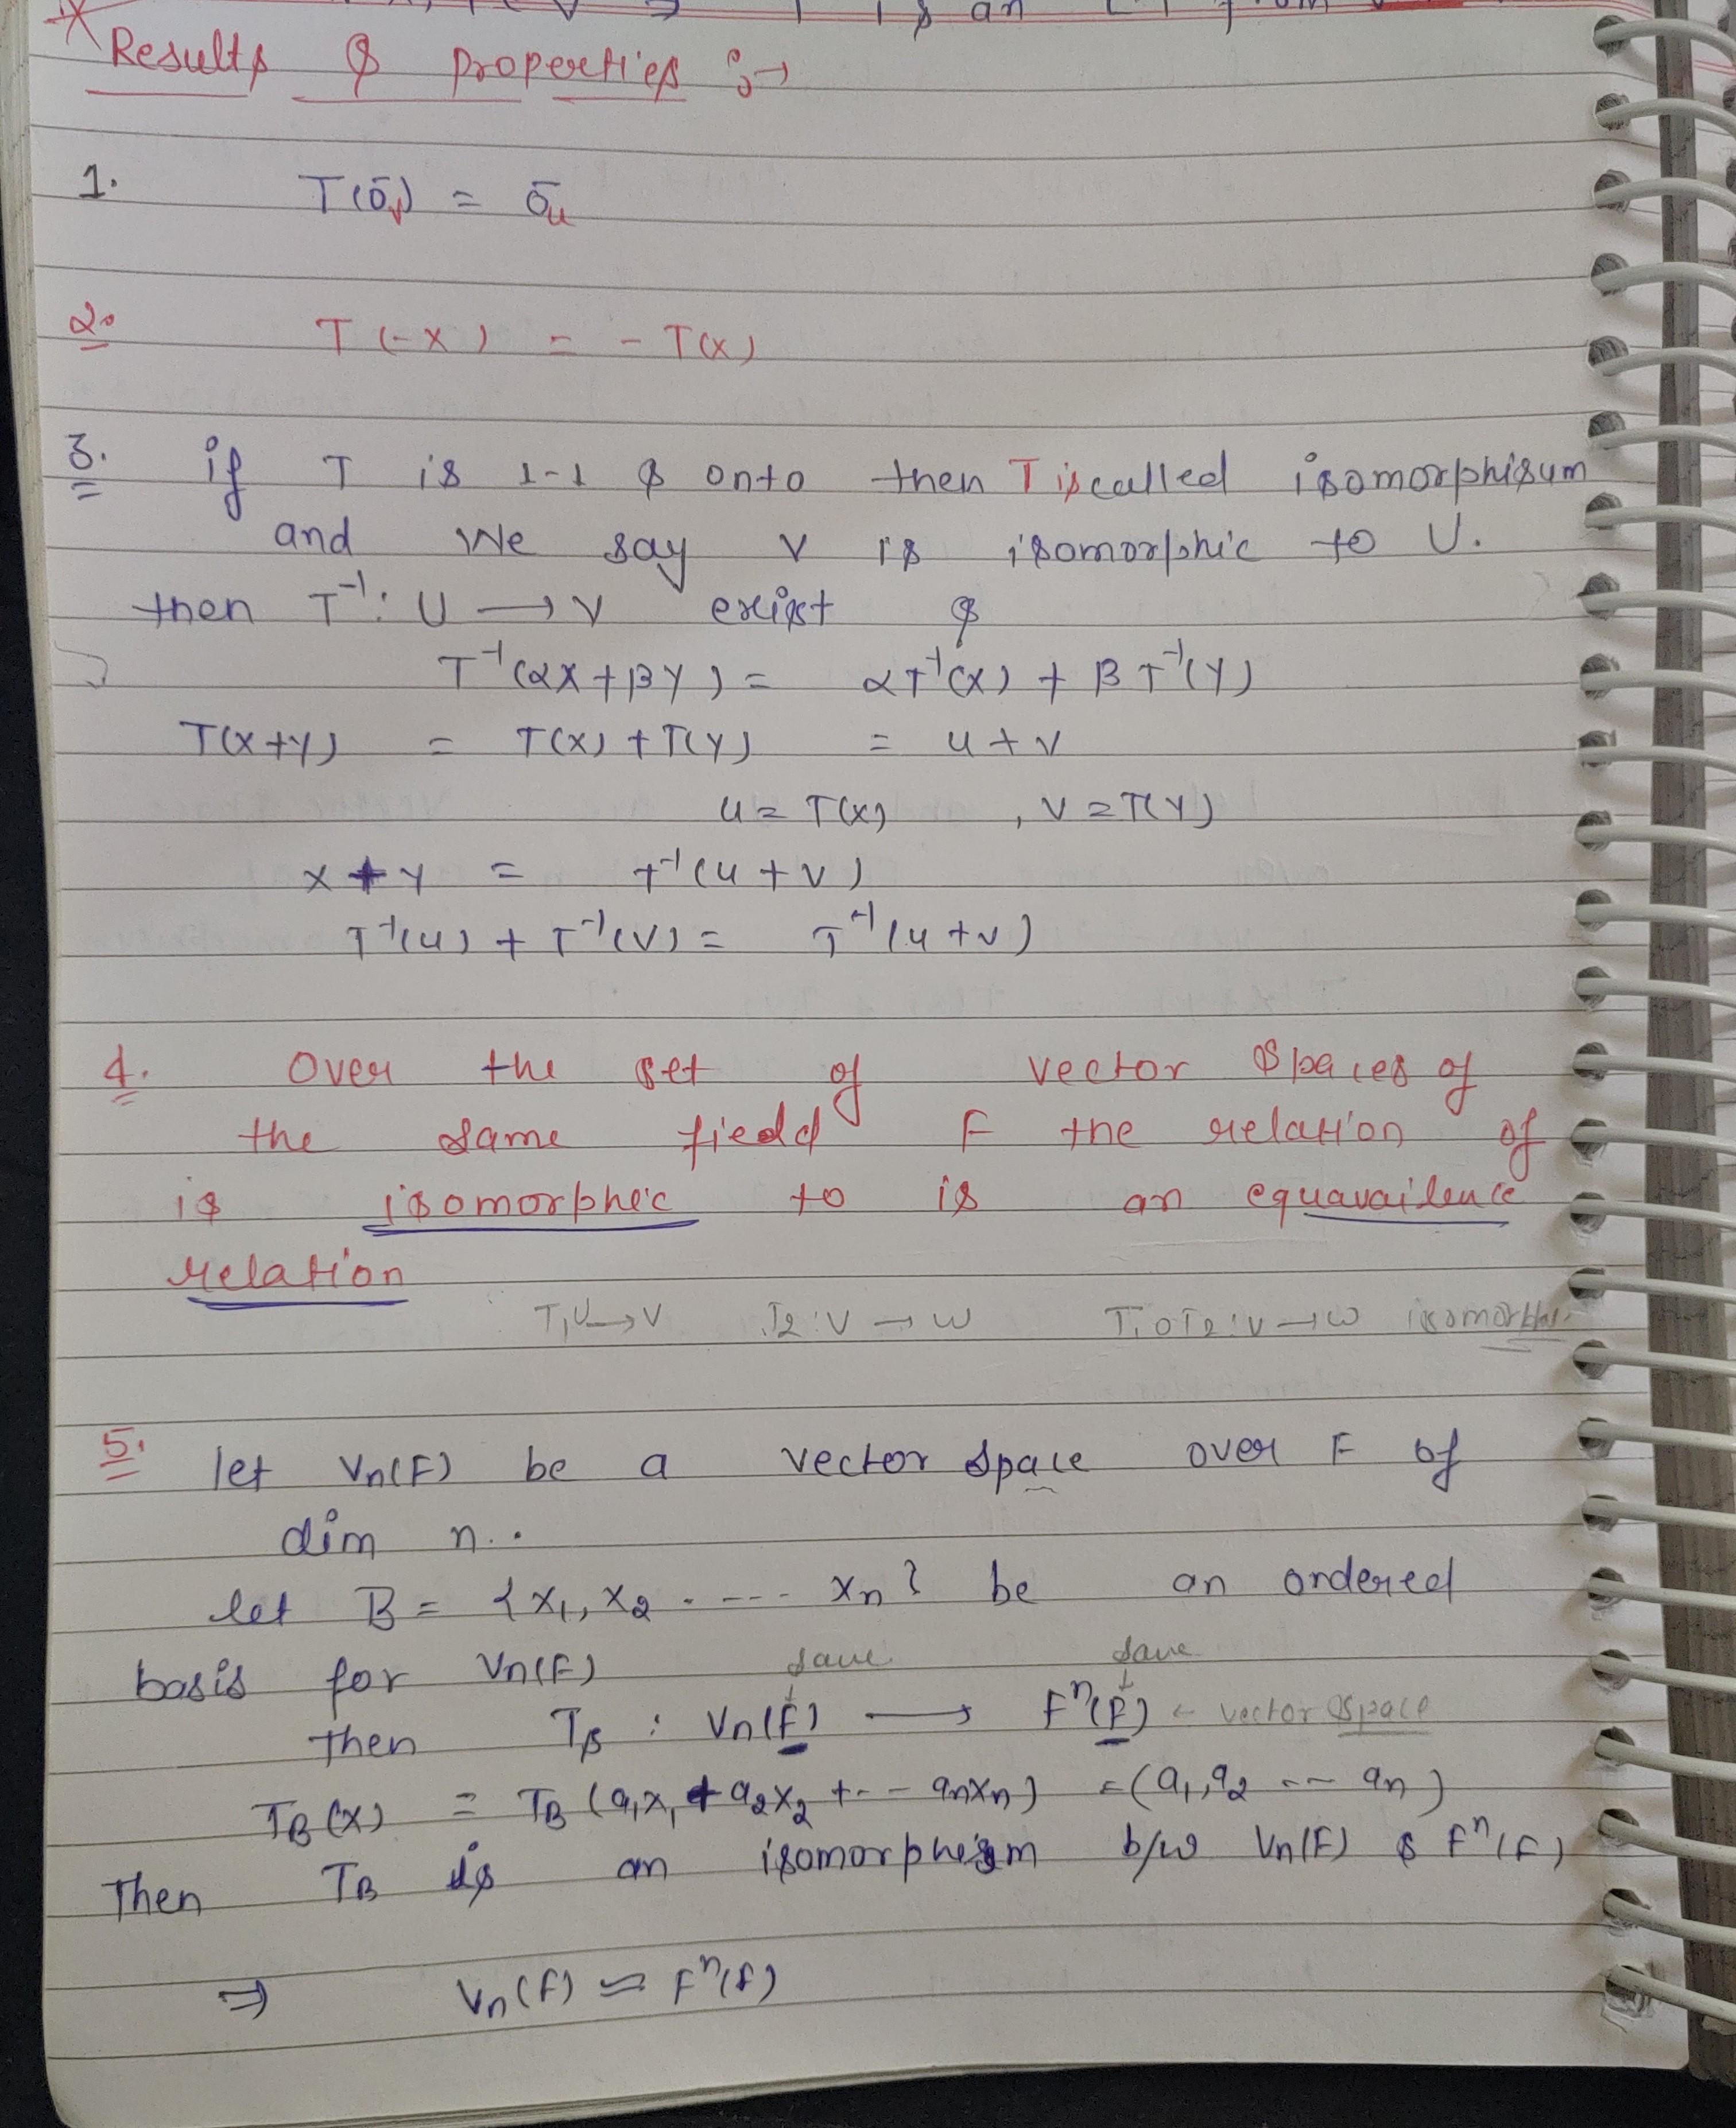 is an
Results & properties :→
1. T(ō_v) = ō_u
2. T(-x) = -T(x)
3. if T is 1-1 & onto then T is called isomorphisum
and We say V is isomorphic to U.
then T⁻¹: U → V exist &
T⁻¹(αx+βy) = αT⁻¹(x) + βT⁻¹(y)
T(x+y) = T(x) + T(y) = u + v
u = T(x) , v = T(y)
x + y = T⁻¹(u + v)
T⁻¹(u) + T⁻¹(v) = T⁻¹(u+v)
4. Over the set of vector spaces of
the same field F the relation of
is isomorphic to is an equavailence
relation
T₁U→V T₂:V → W T₁OT₂:V→W
5. let Vn(F) be a vector space over F of
dim n..
let B = {x₁, x₂ . --- xn} be an ordered
basis for Vn(F)
then T_B : Vn(F) → Fⁿ(F) ← vector space
T_B(x) = T_B(a₁x₁ + a₂x₂ + -- anxn) = (a₁, a₂ --- an)
Then T_B is an isomorpheism b/w Vn(F) & Fⁿ(F)
⇒ Vn(F) ≃ Fⁿ(F)